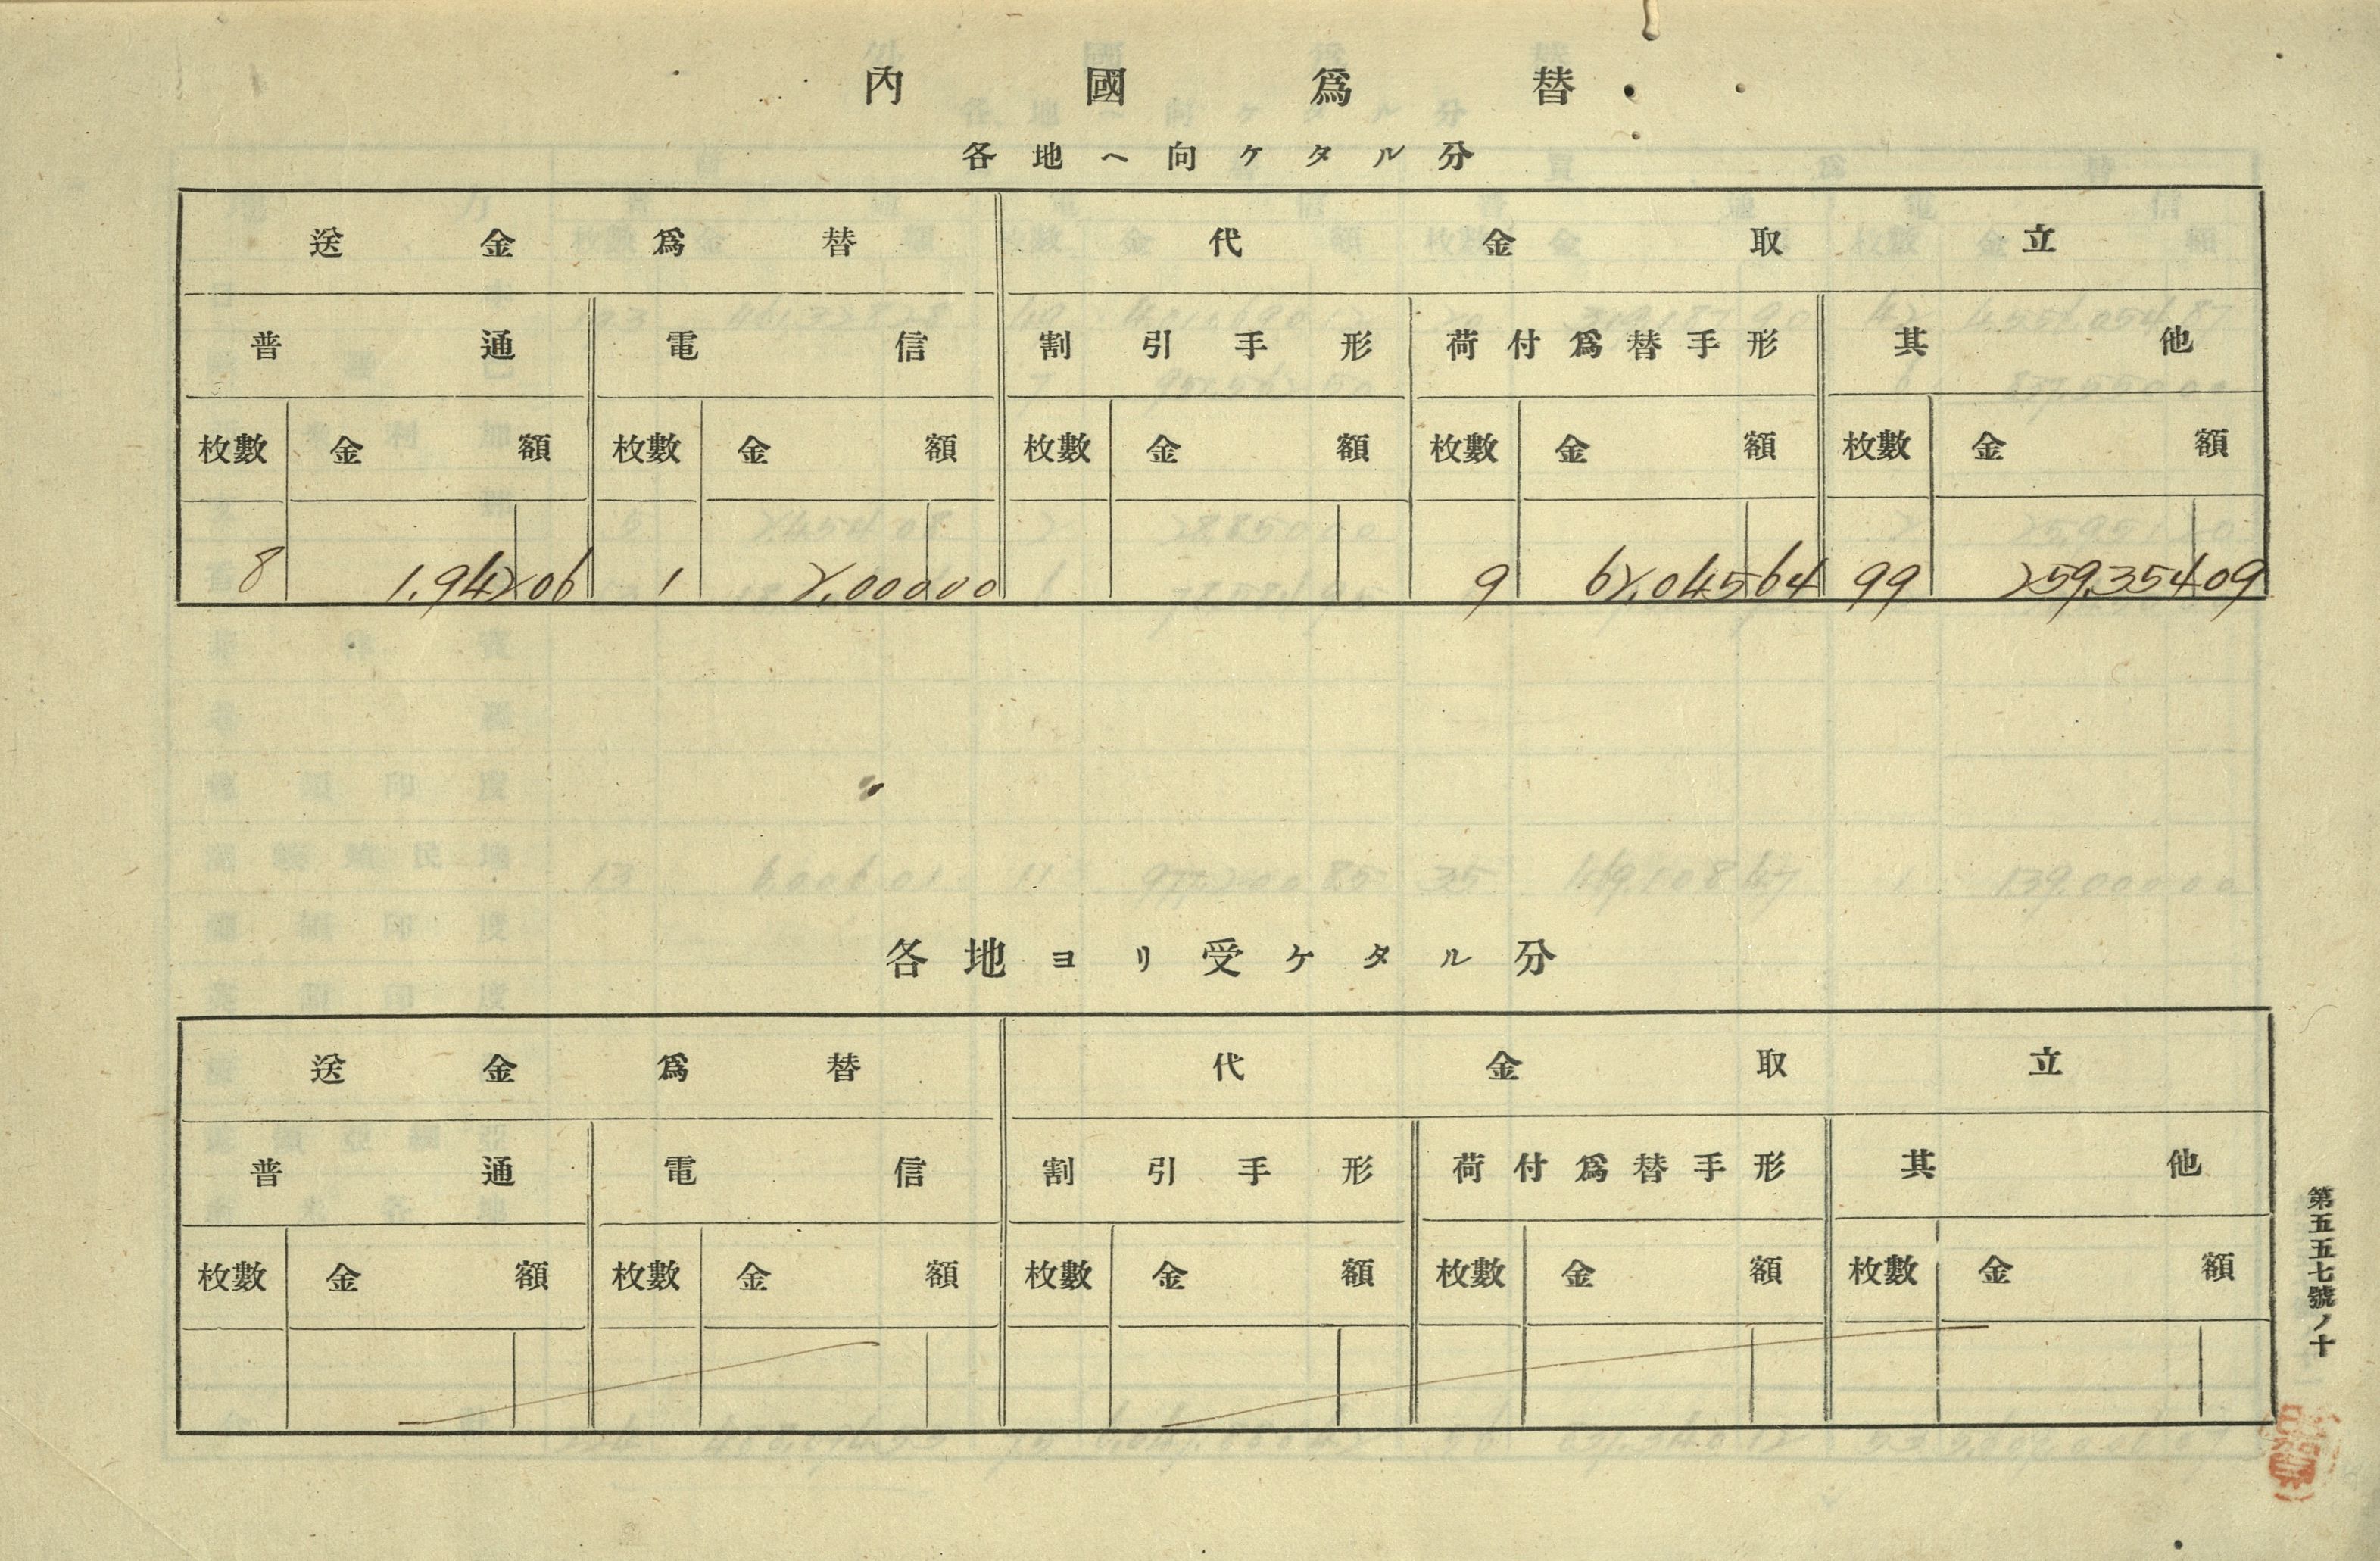 內國爲替
各地ヘ向ケタル分
送金爲替 代金取立
普通 電信 割引手形 荷付爲替手形 其他
枚數 金額 枚數 金額 枚數 金額 枚數 金額 枚數 金額
8 1.942 06 1 2,000 00 9 62,045 64 99 259,354 09
各地ヨリ受ケタル分
送金爲替 代金取立
普通 電信 割引手形 荷付爲替手形 其他
枚數 金額 枚數 金額 枚數 金額 枚數 金額 枚數 金額
第五五七號ノ十